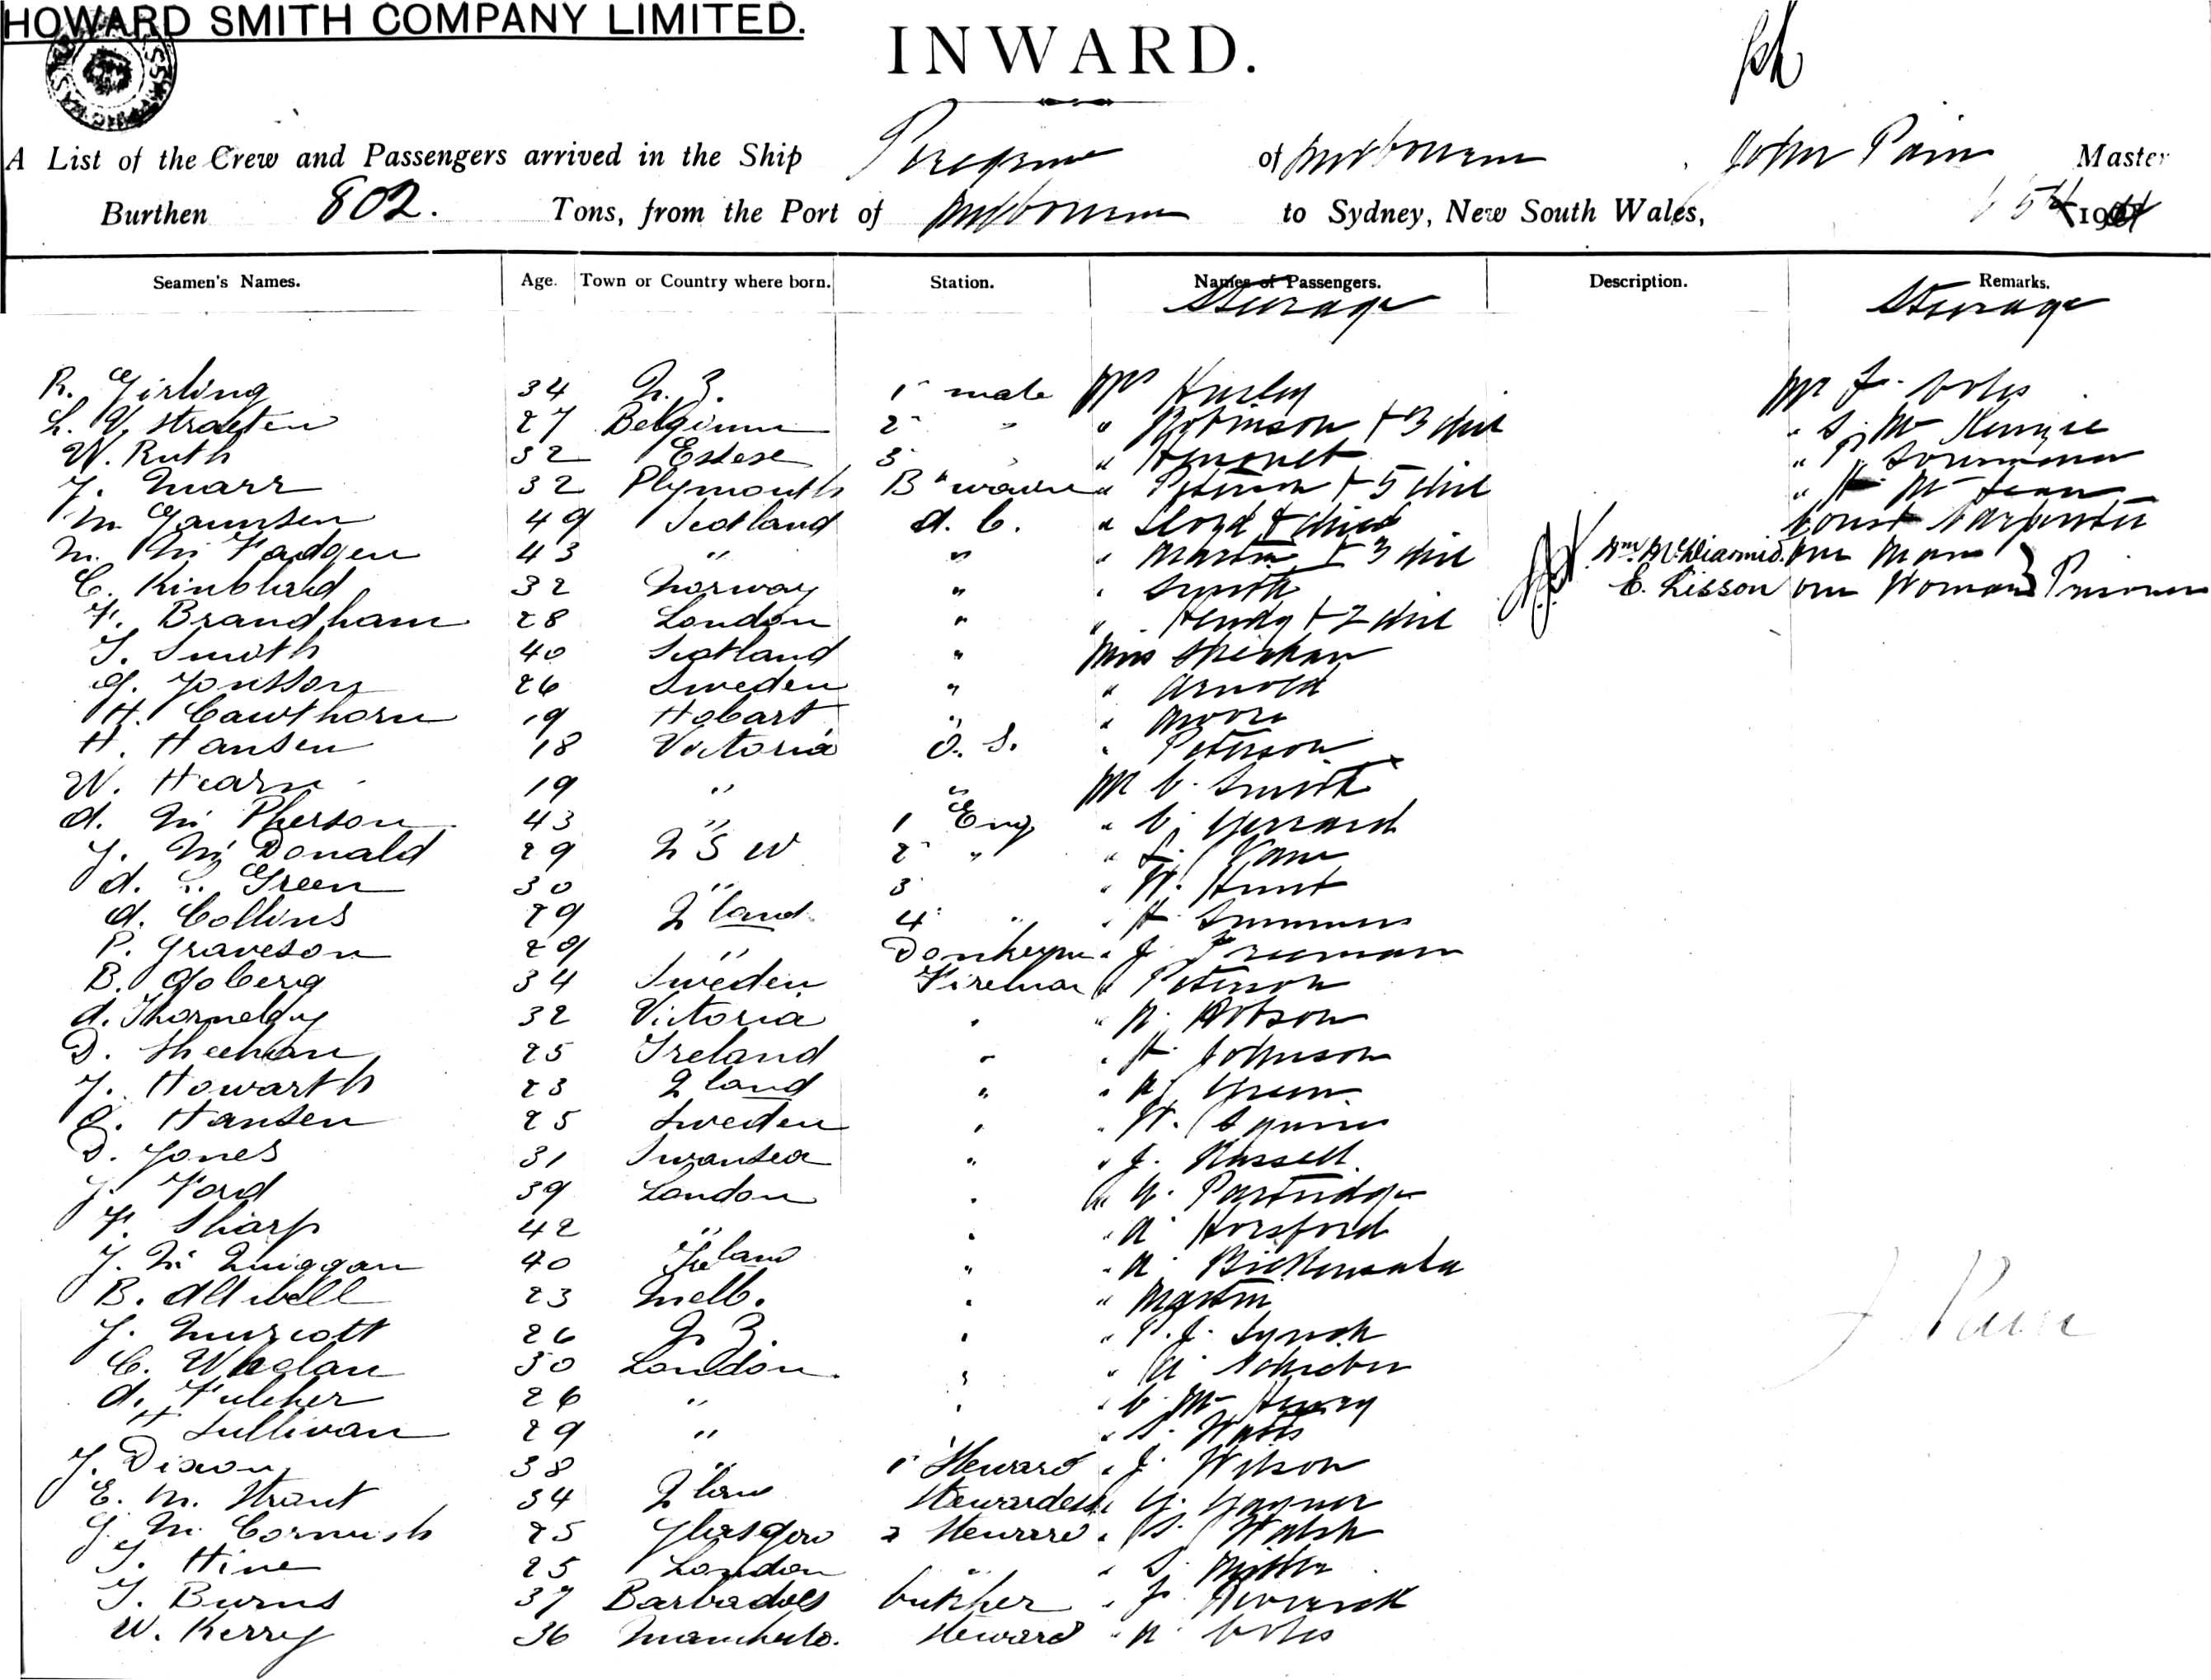 HOWARD SMITH COMPANY LIMITED.
INWARD.
A List of the Crew and Passengers arrived in the Ship Peregrine of Melbourne, John Pain Master
Burthen 802. Tons, from the Port of Melbourne to Sydney, New South Wales, 190
Seamen's Names. Age. Town or Country where born. Station. Names of Passengers. Description. Remarks.
Steerage Steerage
R. Girling 34 N.Z. 1 mate Mrs Hurley Mr F. Coles
L. V. Straeten 27 Belgium 2 " " Robinson + 3 chil " S. Mc Kenzie
W. Ruth 32 Essex 3 " "
J. Marr 32 Plymouth B "swain " Peterson + 5 chil " H. Mc Lean
M Gaunsen 49 Scotland A. B. " Lloyd & child Const Carpenter
M. Mc Fadgen 43 " " " Martin + 3 chil Wm McDiarmid. one Man
C. Kinblad 32 Norway " " Smith E. Lisson one Woman } Prisoners
F. Brandham 28 London " " Hendy + 2 chil
T. Smith 40 Scotland " Miss Sheehan
G. Jonsson 26 Sweden " " Arnold
H. Cawthorn 19 Hobart " " Moore
H. Hansen 18 Victoria O. S. " Peterson
W. Hearn 19 " " Mr C. Smith
A. Mc Pherson 43 " 1 Eng " C. Gerrard
J. Mc Donald 29 N S W 2 " " Kane
A. L. Green 30 " 3 " W. Hunt
A. Collins 29 Q land 4 " " H. Summers
P. Graveson 29 " Donkeyman " J. Freeman
B. Goberg 34 Sweden Fireman " Peterson
A. Thorneloy 32 Victoria " " R. Hobson
D. Sheehan 25 Ireland " " H. Johnson
J. Howarth 23 Q land " " Green
G. Hansen 25 Sweden " " W. Squires
D. Jones 31 Swansea " " J. Russell
J. Ford 39 London " " G. Partridge
F. Sharp 42 " " " A Horsford
J. Mc Quiggan 40 land " "
B. Attwell 23 Melb. " " Martin
J. Murcott 26 N Z. " " P. J. Lynch
C. Whelan 30 London " " A Schieber
A. Fulcher 26 " " " C. Mc Henry
H Sullivan 29 " " S. Watts
J. Dixon 38 " 1 Steward " J. Wilson
E. M. Strant 34 Q land Stewardess " G. Wagner
J. M. Cornish 25 Glasgow 2 Steward " S. Walsh
T. Hine 25 London " " S. Miller
T. Burns 37 Barbadoes butcher "
W. Kerry 36 Manchester. Steward " R. Coles
J Pain